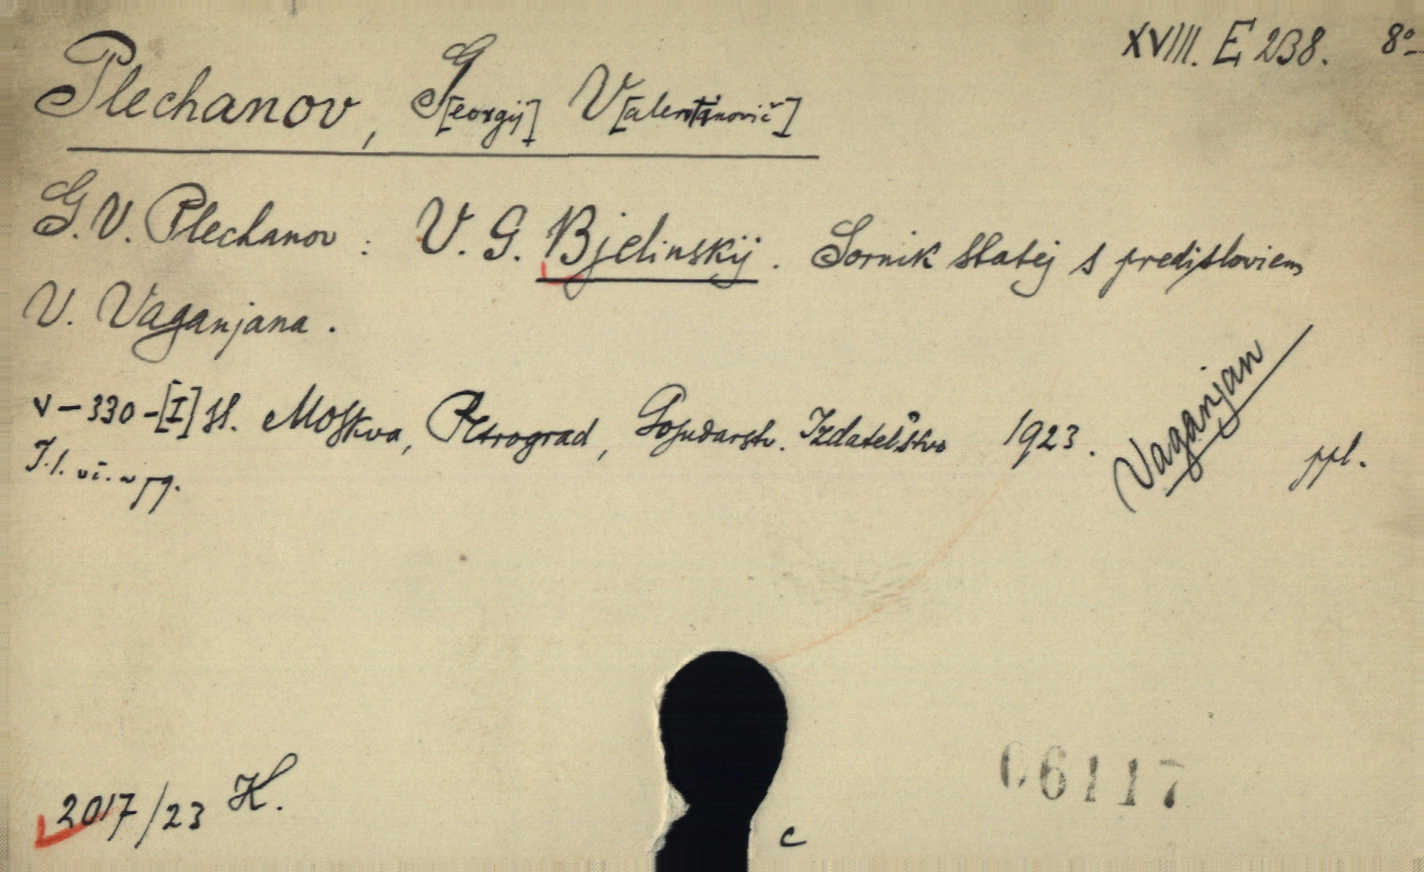 XVIII. E 238. 8°
Plechanov, G[eorgij] V[alentinovič]
G. V. Plechanov : V. G. Bjelinskij . Sornik statej s predisloviem
V. Vaganjana .
V – 330 – [I] st. Moskva, Petrograd, Gosudarstv. Izdatelstvo 1923 .
Vaganjan
ppl.
2017/23 K.
06117
c